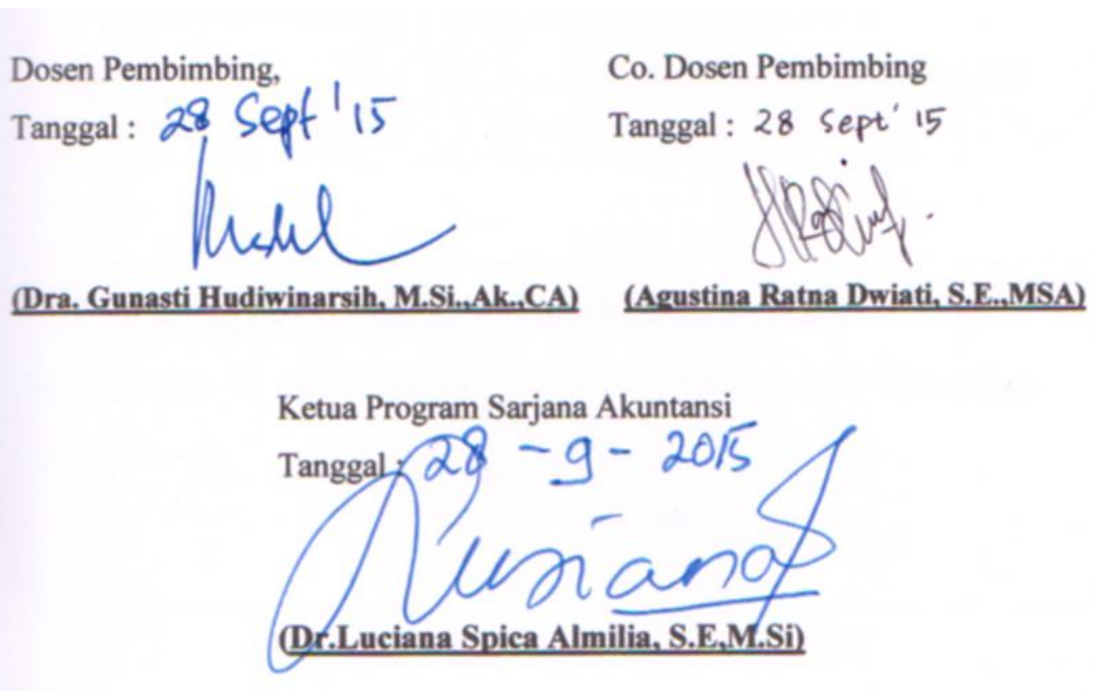 Dosen Pembimbing,
Tanggal : 28 Sept '15
(Dra. Gunasti Hudiwinarsih, M.Si.,Ak.,CA)
Co. Dosen Pembimbing
Tanggal : 28 Sept' 15
(Agustina Ratna Dwiati, S.E.,MSA)
Ketua Program Sarjana Akuntansi
Tanggal : 28 - 9 - 2015
Lusiana
(Dr.Luciana Spica Almilia, S.E,M.Si)